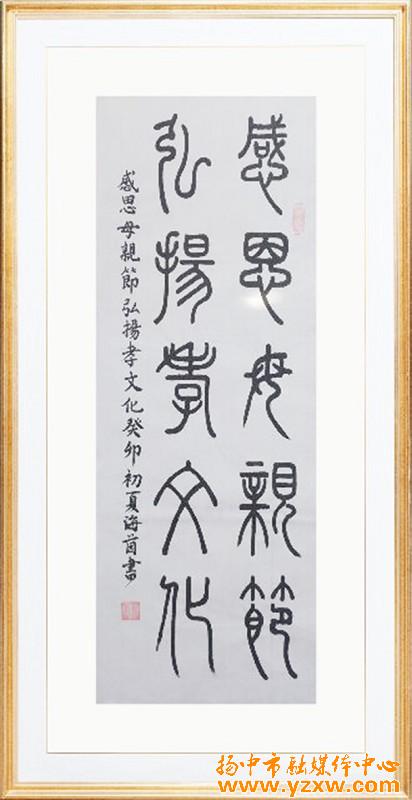 感恩母親節
弘揚孝文化
感恩母親節弘揚孝文化癸卯初夏海茵書
扬中市融媒体中心
www.yzxw.com